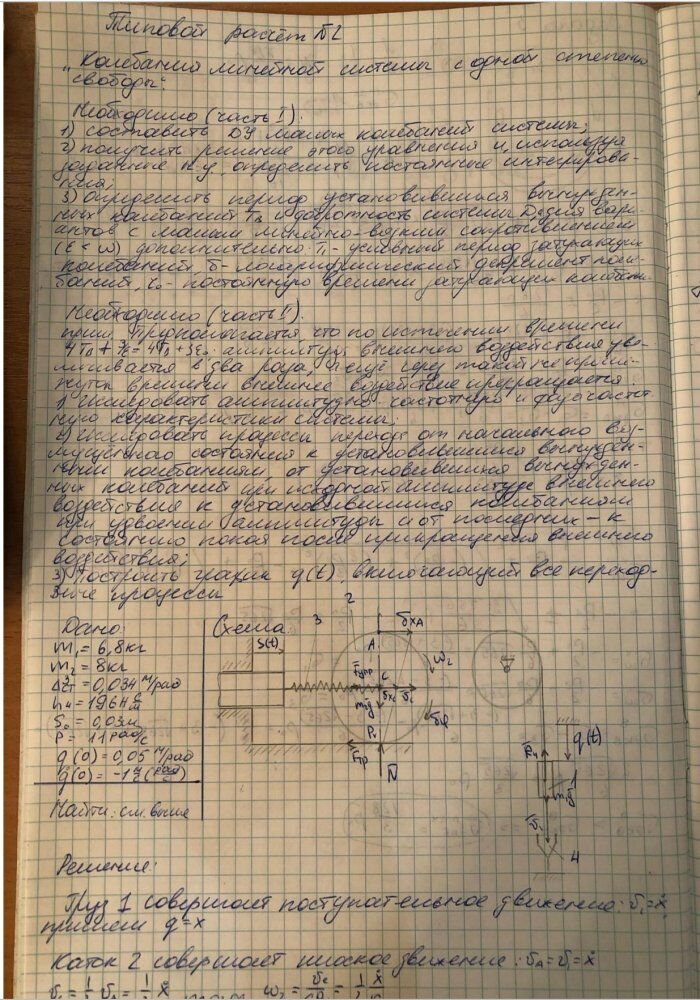 Типовой расчёт №2
"Колебания линейной системы с одной степенью
свободы".
Необходимо (часть I).
1) составить ДУ малых колебаний системы;
2) получить решение этого уравнения и, используя
заданные н.у. определить постоянные интегрирова-
ния;
3) Определить период установившихся вынужден-
ных колебаний Tв и добротность системы D, для вари-
антов с малым линейно-вязким сопротивлением
(ε < ω) дополнительно T₁ - условный период затухающих
колебаний, δ - логарифмический декремент коле-
баний, τ₀ - постоянную времени затухающих колебан.
Необходимо (часть II).
прим. Предполагается, что по истечении времени
амплитуда внешнего воздействия уве-
личивается в два раза, а ещё через такой же проме-
жуток времени внешнее воздействие прекращается.
1) Исследовать амплитудно-частотную и фазочастот-
ную характеристики системы;
2) Исследовать процессы перехода от начального воз-
мущённого состояния к установившимся вынужден-
ным колебаниям, от установившихся вынужден-
ных колебаний при исходной амплитуде внешнего
воздействия к установившимся колебаниям
при удвоении амплитуды и от последних - к
состоянию покоя после прекращения внешнего
воздействия;
3) Построить график q(t), включающий все переход-
ные процессы
Дано:
m₁ = 6,8кг
m₂ = 8кг
= 0,034 м/рад
S₀ = 0,03м
P = 11 рад/с
q(0) = 0,05 м/рад
q̇(0) = -1 м/с (рад/с)
Найти: см. выше
Схема
3
2
S(t)
A
δxA
ω₂
Fупр
C
δxc
m₂g
δφ
Fтр
N
q(t)
R₄
1
m₁g
v₁
4
Решение:
Груз 1 совершает поступательное движение: v₁=ẋ,
примем q=x
Каток 2 совершает плоское движение: vA = v₁ = ẋ